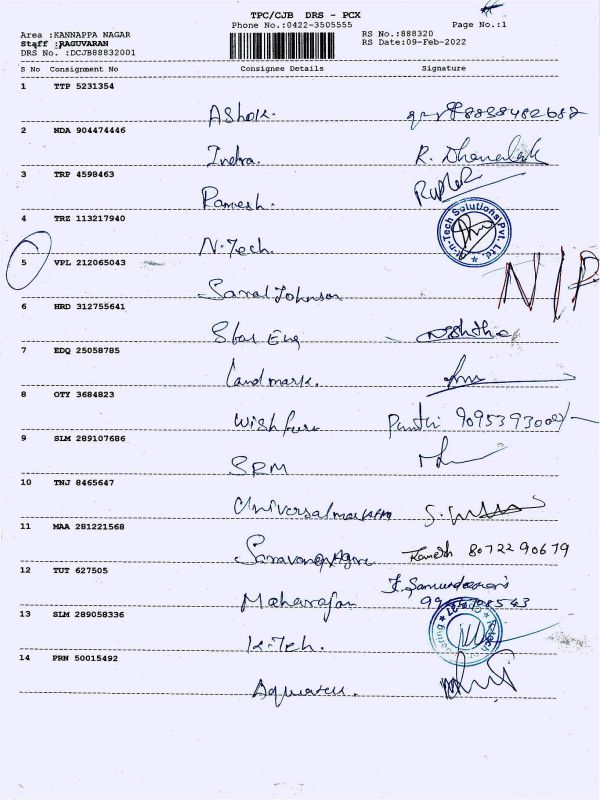 TPC/CJB DRS - PCX
Phone No.:0422-3505555 Page No.:1
Area :KANNAPPA NAGAR RS No.:888320
Staff :RAGUVARAN RS Date:09-Feb-2022
DRS No. :DCJB88832001
S No Consignment No Consignee Details Signature
1 TTP 5231354
Ashok. 8838482682
2 NDA 904474446
Indra. R. Dhanalak
3 TRP 4598463
Ramesh.
4 TRZ 113217940
N.Tech. n-Tech Solutions Pvt. Ltd.
5 VPL 212065043
Saral Johnson N/P
6 HRD 312755641
Star Eng
7 EDQ 25058785
Landmark.
8 OTY 3684823
Wish 9095393000/-
9 SLM 289107686
SRM
10 TNJ 8465647
Universal
11 MAA 281221568
Saravana Agen Ramesh 8072290679
12 TUT 627505
Maharajan
13 SLM 289058336
K-Tech.
14 PRN 50015492